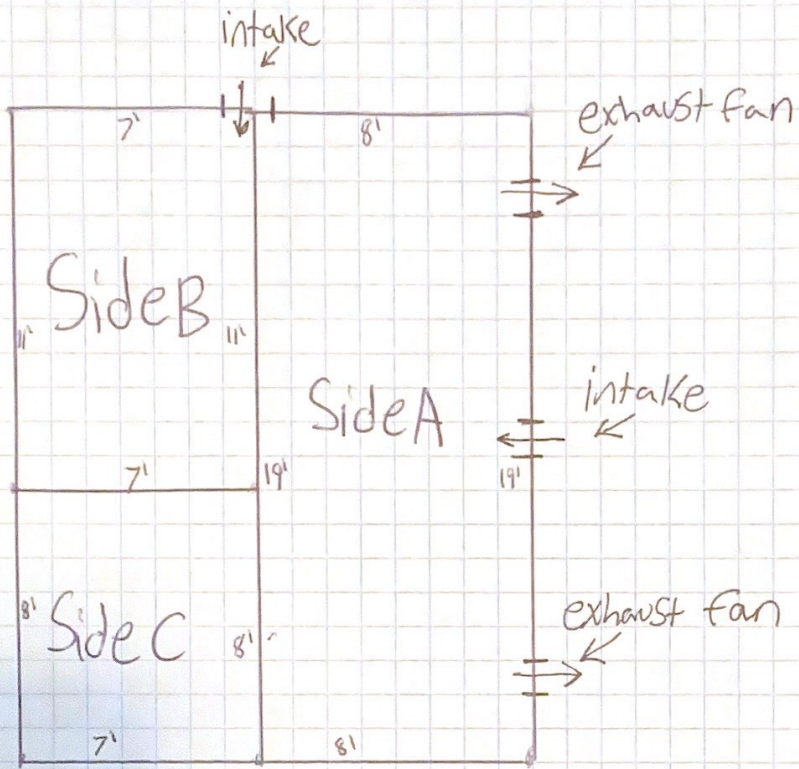 intake
7'
8'
exhaust fan
Side B
11'
11'
Side A
intake
7'
19'
19'
Side C
8'
8'
exhaust fan
7'
8'